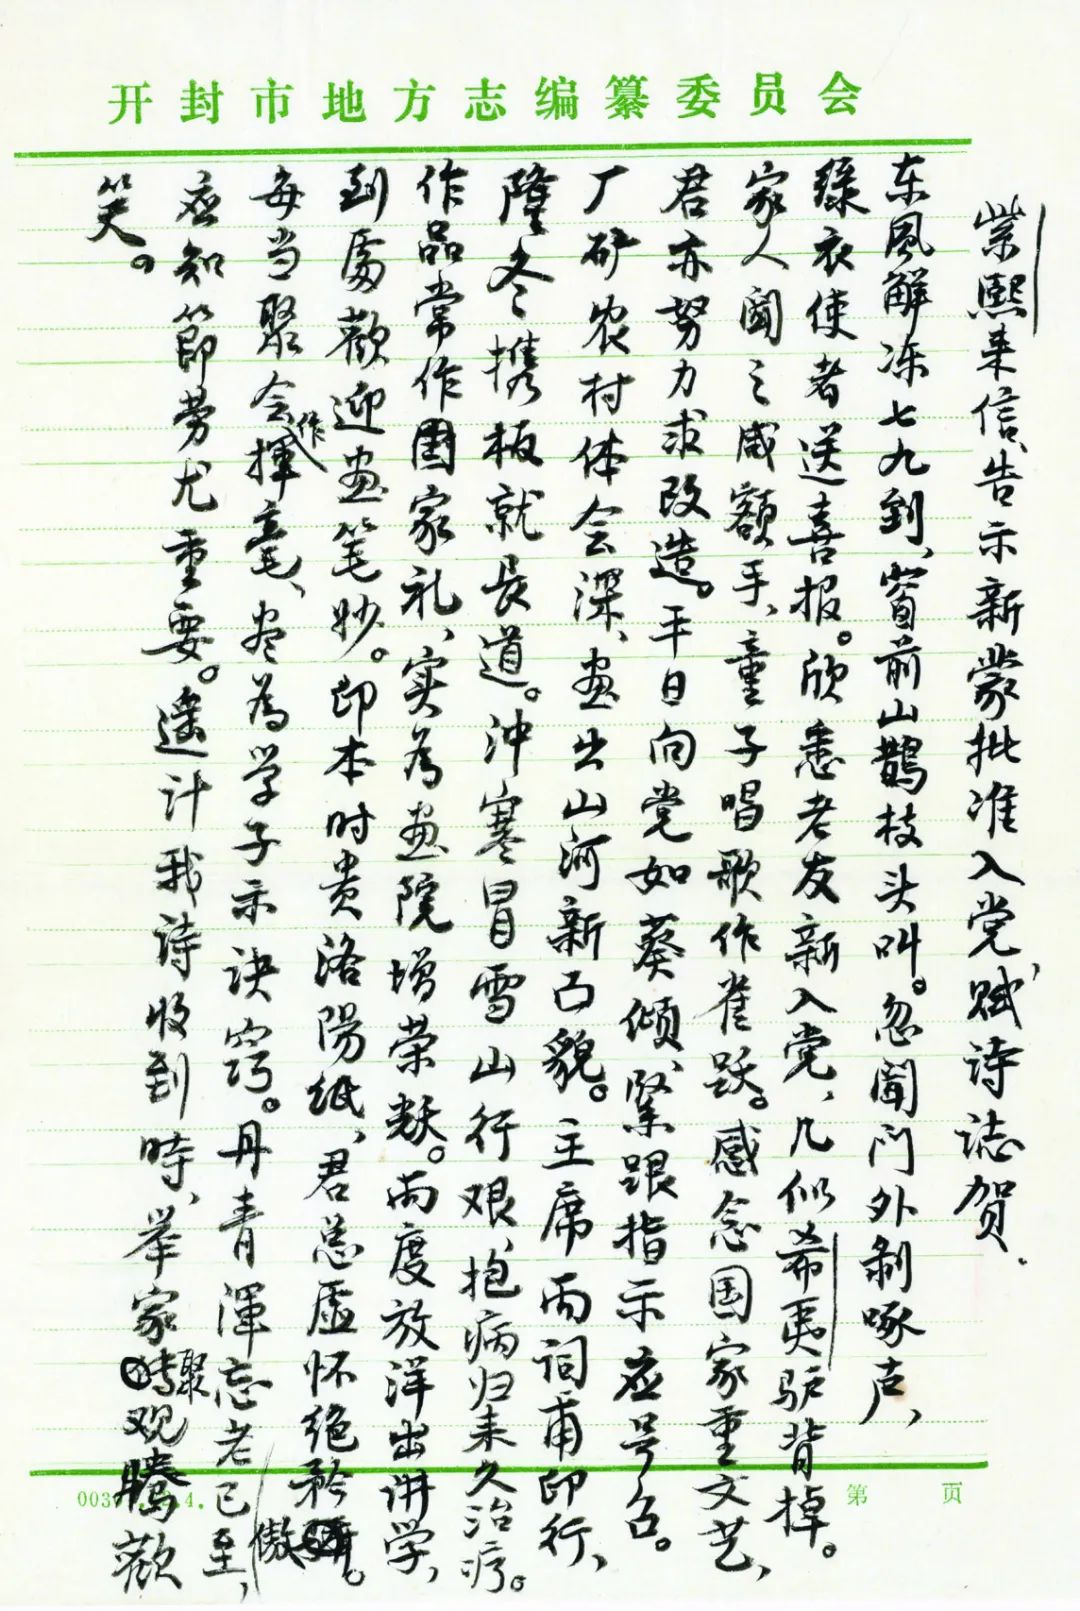 开封市地方志编纂委员会
紫熙来信、告示新蒙批准入党，赋诗志贺.
东風解冻七九到、窗前山鹊枝头叫。忽闻门外剥啄声，
绿衣使者送喜报。欣悉老友新入党，几似希夷驴背掉。
家人闻之咸额手、童子唱歌作雀跃。感念国家重文艺，
君亦努力求改造。平日向党如葵倾、紧跟指示应号召。
厂矿农村体会深、画出山河新面貌。主席两词甫印行，
隆冬携板就長道。冲寒冒雪山行艰、抱病归来久治疗。
作品常作国家礼，实为画院增荣耀。两度放洋出讲学，
到處歡迎画笔妙。即本时贵洛陽纸，君总虚怀绝矜傲。
每当聚会作揮毫、尽為学子示诀窍。丹青渾忘老已至，
应知節劳尤重要。遥计我诗收到時、举家聚观腾歡
笑。
第 页